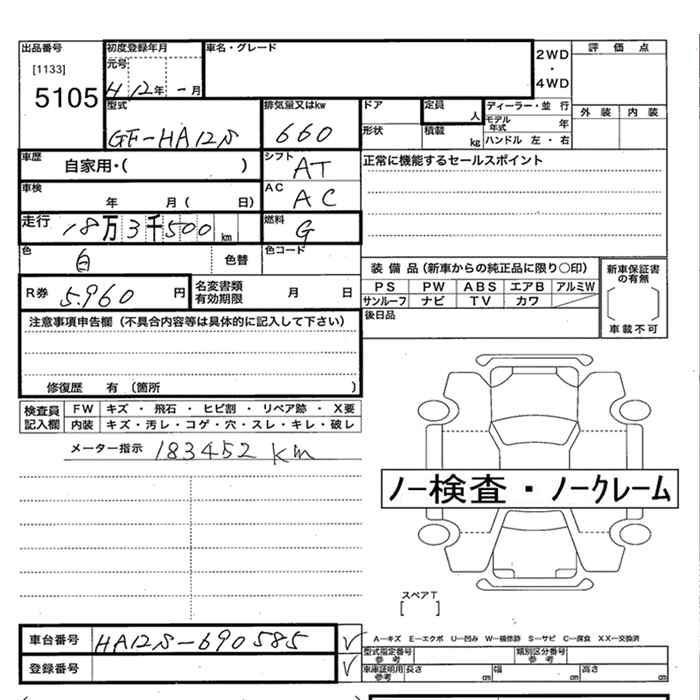 出品番号
[1133]
5105
初度登録年月
元号
H 12年 -月
車名・グレード
2WD
・
4WD
評 価 点
外 装 内 装
型式
GF-HA12S
排気量又はkw
660
ドア
形状
定員
人
積載
kg
ディーラー・並 行
モデル年式 年
ハンドル 左・右
車歴
自家用・( )
シフト
AT
正常に機能するセールスポイント
車検
年 月( 日)
AC
AC
走行
18万3千500km
燃料
G
色
白
色替
色コード
R券 5.960 円
名変書類
有効期限
月 日
装 備 品(新車からの純正品に限り○印)
PS PW ABS エアB アルミW
サンルーフ ナビ TV カワ
後日品
新車保証書
の有無
車載不可
注意事項申告欄(不具合内容等は具体的に記入して下さい)
修復歴 有(箇所 )
検査員
記入欄
FW キズ・飛石・ヒビ割・リペア跡・X要
内装 キズ・汚レ・コゲ・穴・スレ・キレ・破レ
メーター指示 183452 km
ノー検査・ノークレーム
スペアT
[ ]
車台番号 HA12S-690585 ✓
登録番号 ✓
A―キズ E―エクボ U―凹み W―補修跡 S―サビ C―腐食 XX―交換済
型式指定番号
参 考
類別区分番号
参 考
車庫証明用
参考
長さ cm 幅 cm 高さ cm